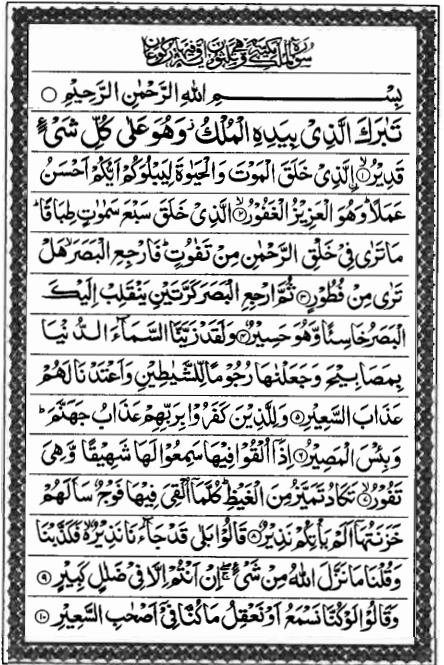 سورة الملك مكية وهي ثلثون اية وفيها ركوعان
بِسْمِ اللهِ الرَّحْمٰنِ الرَّحِيْمِ ○
تَبٰرَكَ الَّذِىْ بِيَدِهِ الْمُلْكُ ز وَهُوَ عَلٰى كُلِّ شَىْءٍ
قَدِيْرُ ۙ﴿۱﴾ اِلَّذِىْ خَلَقَ الْمَوْتَ وَالْحَيٰوةَ لِيَبْلُوَكُمْ اَيُّكُمْ اَحْسَنُ
عَمَلًا ؕ وَهُوَ الْعَزِيْزُ الْغَفُوْرُ ۙ﴿۲﴾ الَّذِىْ خَلَقَ سَبْعَ سَمٰوٰتٍ طِبَاقًا ؕ
مَا تَرٰى فِىْ خَلْقِ الرَّحْمٰنِ مِنْ تَفٰوُتٍ ؕ فَارْجِعِ الْبَصَرَ ۙ هَلْ
تَرٰى مِنْ فُطُوْرٍ ﴿۳﴾ ثُمَّ ارْجِعِ الْبَصَرَ كَرَّتَيْنِ يَنْقَلِبْ اِلَيْكَ
الْبَصَرُ خَاسِئًا وَّهُوَ حَسِيْرٌ ﴿۴﴾ وَلَقَدْ زَيَّنَّا السَّمَآءَ الدُّنْيَا
بِمَصَابِيْحَ وَجَعَلْنٰهَا رُجُوْمًا لِّلشَّيٰطِيْنِ وَاَعْتَدْنَا لَهُمْ
عَذَابَ السَّعِيْرِ ﴿۵﴾ وَلِلَّذِيْنَ كَفَرُوْا بِرَبِّهِمْ عَذَابُ جَهَنَّمَ ؕ
وَبِئْسَ الْمَصِيْرُ ﴿۶﴾ اِذَآ اُلْقُوْا فِيْهَا سَمِعُوْا لَهَا شَهِيْقًا وَّهِىَ
تَفُوْرُ ۙ﴿۷﴾ تَكَادُ تَمَيَّزُ مِنَ الْغَيْظِ ؕ كُلَّمَآ اُلْقِىَ فِيْهَا فَوْجٌ سَاَلَهُمْ
خَزَنَتُهَآ اَلَمْ يَاْتِكُمْ نَذِيْرٌ ﴿۸﴾ قَالُوْا بَلٰى قَدْ جَآءَنَا نَذِيْرٌ ۙ فَكَذَّبْنَا
وَقُلْنَا مَا نَزَّلَ اللهُ مِنْ شَىْءٍ ۚۖ اِنْ اَنْتُمْ اِلَّا فِىْ ضَلٰلٍ كَبِيْرٍ ﴿۹﴾
وَقَالُوْا لَوْ كُنَّا نَسْمَعُ اَوْ نَعْقِلُ مَا كُنَّا فِىْٓ اَصْحٰبِ السَّعِيْرِ ﴿۱۰﴾